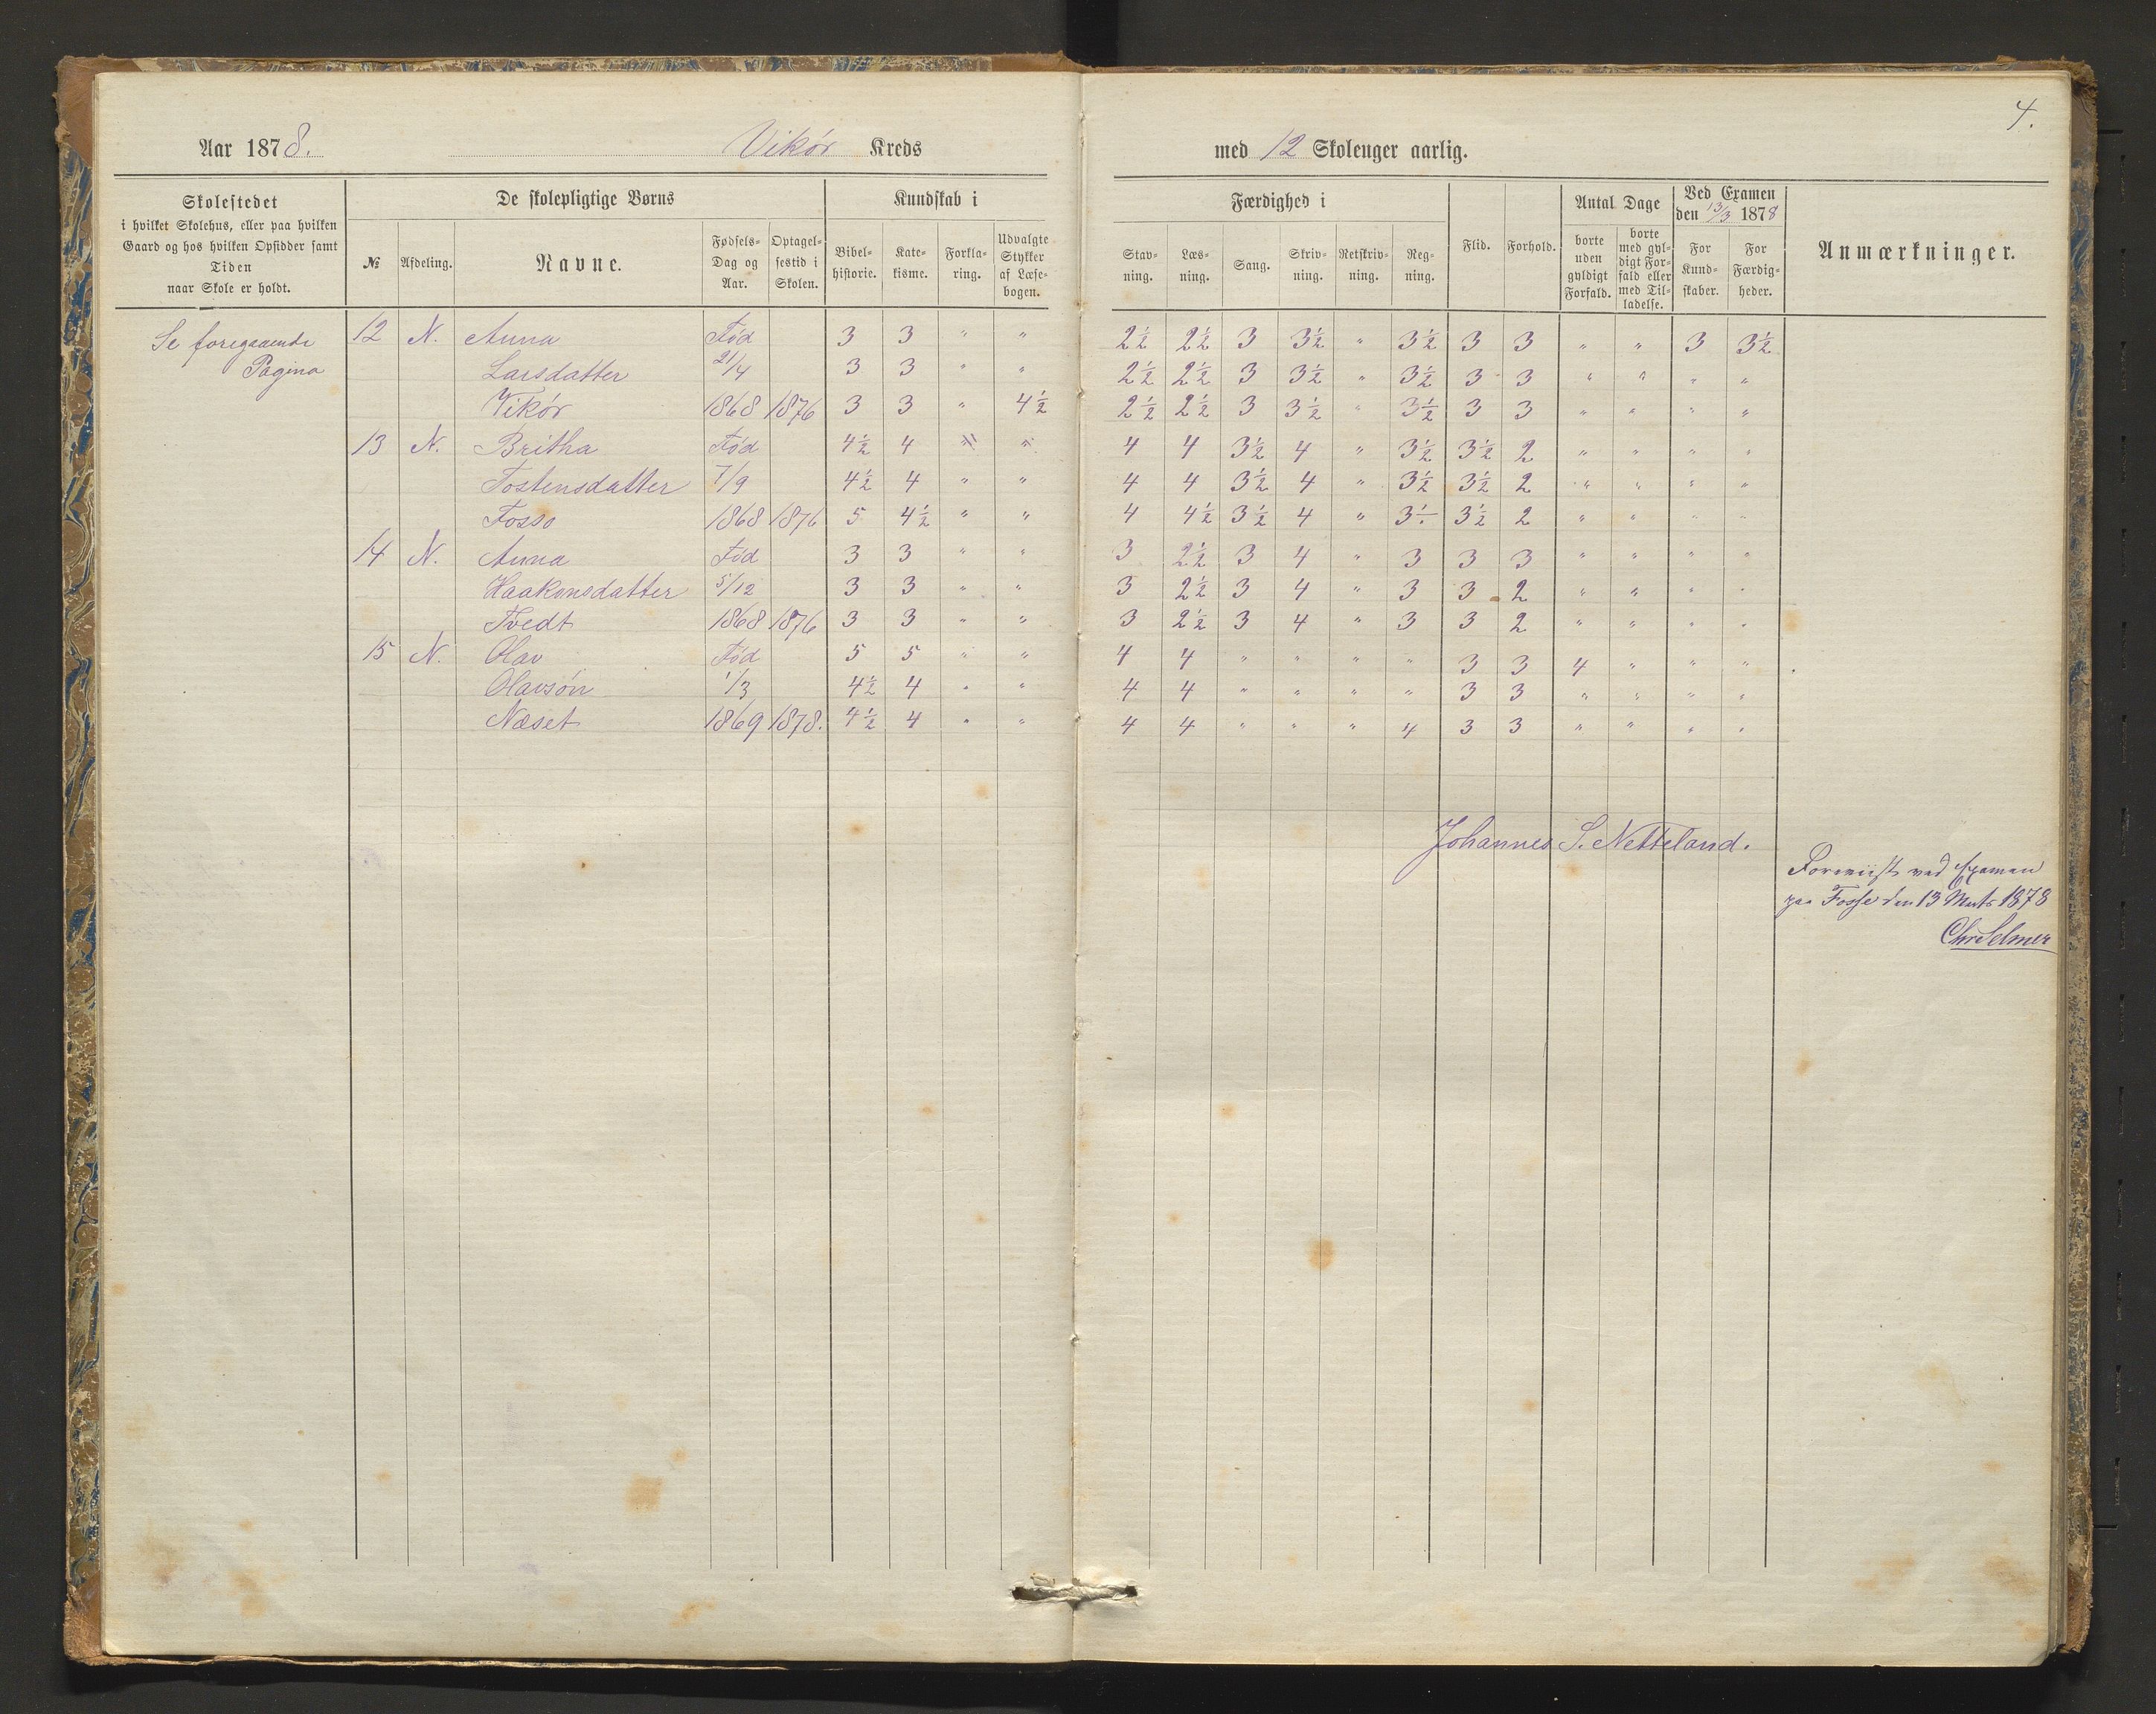 4.
Aar 1878. Vikør Kreds med 12 Skoleuger aarlig.
Skolestedet
i hvilket Skolehus, eller paa hvilken
Gaard og hos hvilken Opsidder samt
Tiden
naar Skole er holdt.
De skolepligtige Børns
№
Afdeling.
Navne.
Fødsels-
Dag og
Aar.
Optagel-
sestid i
Skolen.
Kundskab i
Bibel-
historie.
Kate-
kisme.
Forkla-
ring.
Udvalgte
Stykker
af Læse-
bogen.
Færdighed i
Stav-
ning.
Læs-
ning.
Sang.
Skriv-
ning.
Retskriv-
ning.
Reg-
ning.
Flid.
Forhold.
Antal Dage
borte
uden
gyldigt
Forfald.
borte
med gyl-
digt For-
fald eller
med Til-
ladelse.
Ved Examen
den 13/3 1878
For
Kund-
skaber.
For
Færdig-
heder.
Anmærkninger.
Se foregaaende 12 N. Anna Fød 3 3 " " 2½ 2½ 3 3½ " 3½ 3 3 " " 3 3½
Pagina Larsdatter 21/4 3 3 " " 2½ 2½ 3 3½ " 3½ 3 3 " " " "
Vikør 1868 1876 3 3 " 4½ 2½ 2½ 3 3½ " 3½ 3 3 " " " "
13 N. Britha Fød 4½ 4 " " 4 4 3½ 4 " 3½ 3½ 2 " " " "
Tostensdatter 7/9 4½ 4 " " 4 4 3½ 4 " 3½ 3½ 2 " " " "
Fosso 1868 1876 5 4½ " " 4 4½ 3½ 4 " 3½ 3½ 2 " " " "
14 N. Anna Fød 3 3 " " 3 2½ 3 4 " 3 3 3 " " " "
Haakonsdatter 5/12 3 3 " " 3 2½ 3 4 " 3 3 2 " " " "
Tvedt 1868 1876 3 3 " " 3 2½ 3 4 " 3 3 2 " " " "
15 N. Olav Fød 5 5 " " 4 4 " " " " 3 3 4 " " "
Olavsøn 1/3 4½ 4 " " 4 4 " " " " 3 3 " " " "
Næset 1869 1878. 4½ 4 " " 4 4 " " " 4 3 3 " " " "
Johannes S. Netteland.
Foreviist ved Examen
paa Fosse den 13 Marts 1878
Chr Selmer